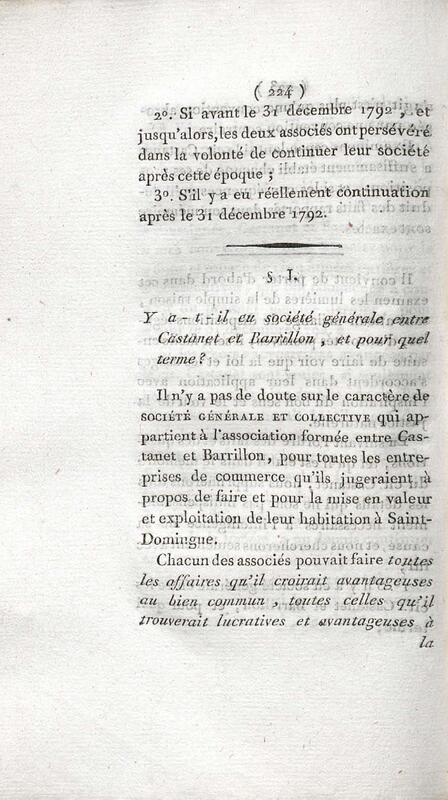 ( 224 )
2º. Si avant le 31 décembre 1792 , et
jusqu'alors, les deux associés ont persévéré
dans la volonté de continuer leur société
après cette époque ;
3º. S'il y a eu réellement continuation
après le 31 décembre 1792.
§ I.
Y a-t-il eu société générale entre
Castanet et Barrillon , et pour quel
terme ?
Il n'y a pas de doute sur le caractère de
SOCIÉTÉ GÉNÉRALE ET COLLECTIVE qui ap-
partient à l'association formée entre Cas-
tanet et Barrillon, pour toutes les entre-
prises de commerce qu'ils jugeraient à
propos de faire et pour la mise en valeur
et exploitation de leur habitation à Saint-
Domingue.
Chacun des associés pouvait faire toutes
les affaires qu'il croirait avantageuses
au bien commun , toutes celles qu'il
trouverait lucratives et avantageuses à
la